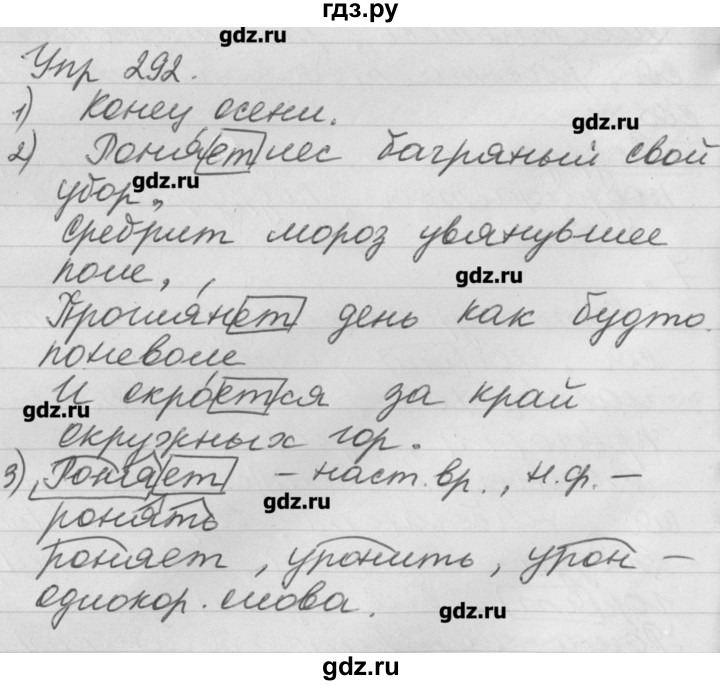 гдз.ру
gdz.ru
Упр 292.
1) Конец осени.
gdz.ru
2) Роняет лес багряный свой
gdz.ru
убор,
сребрит мороз увянувшее
поле,
gdz.ru
Проглянет день как будто
поневоле
И скроется за край
gdz.ru
окружных гор.
3) Роняет – наст. вр., н.ф. –
gdz.ru
ронять
роняет, уронить, урон –
однокор. слова.
gdz.ru
gdz.ru